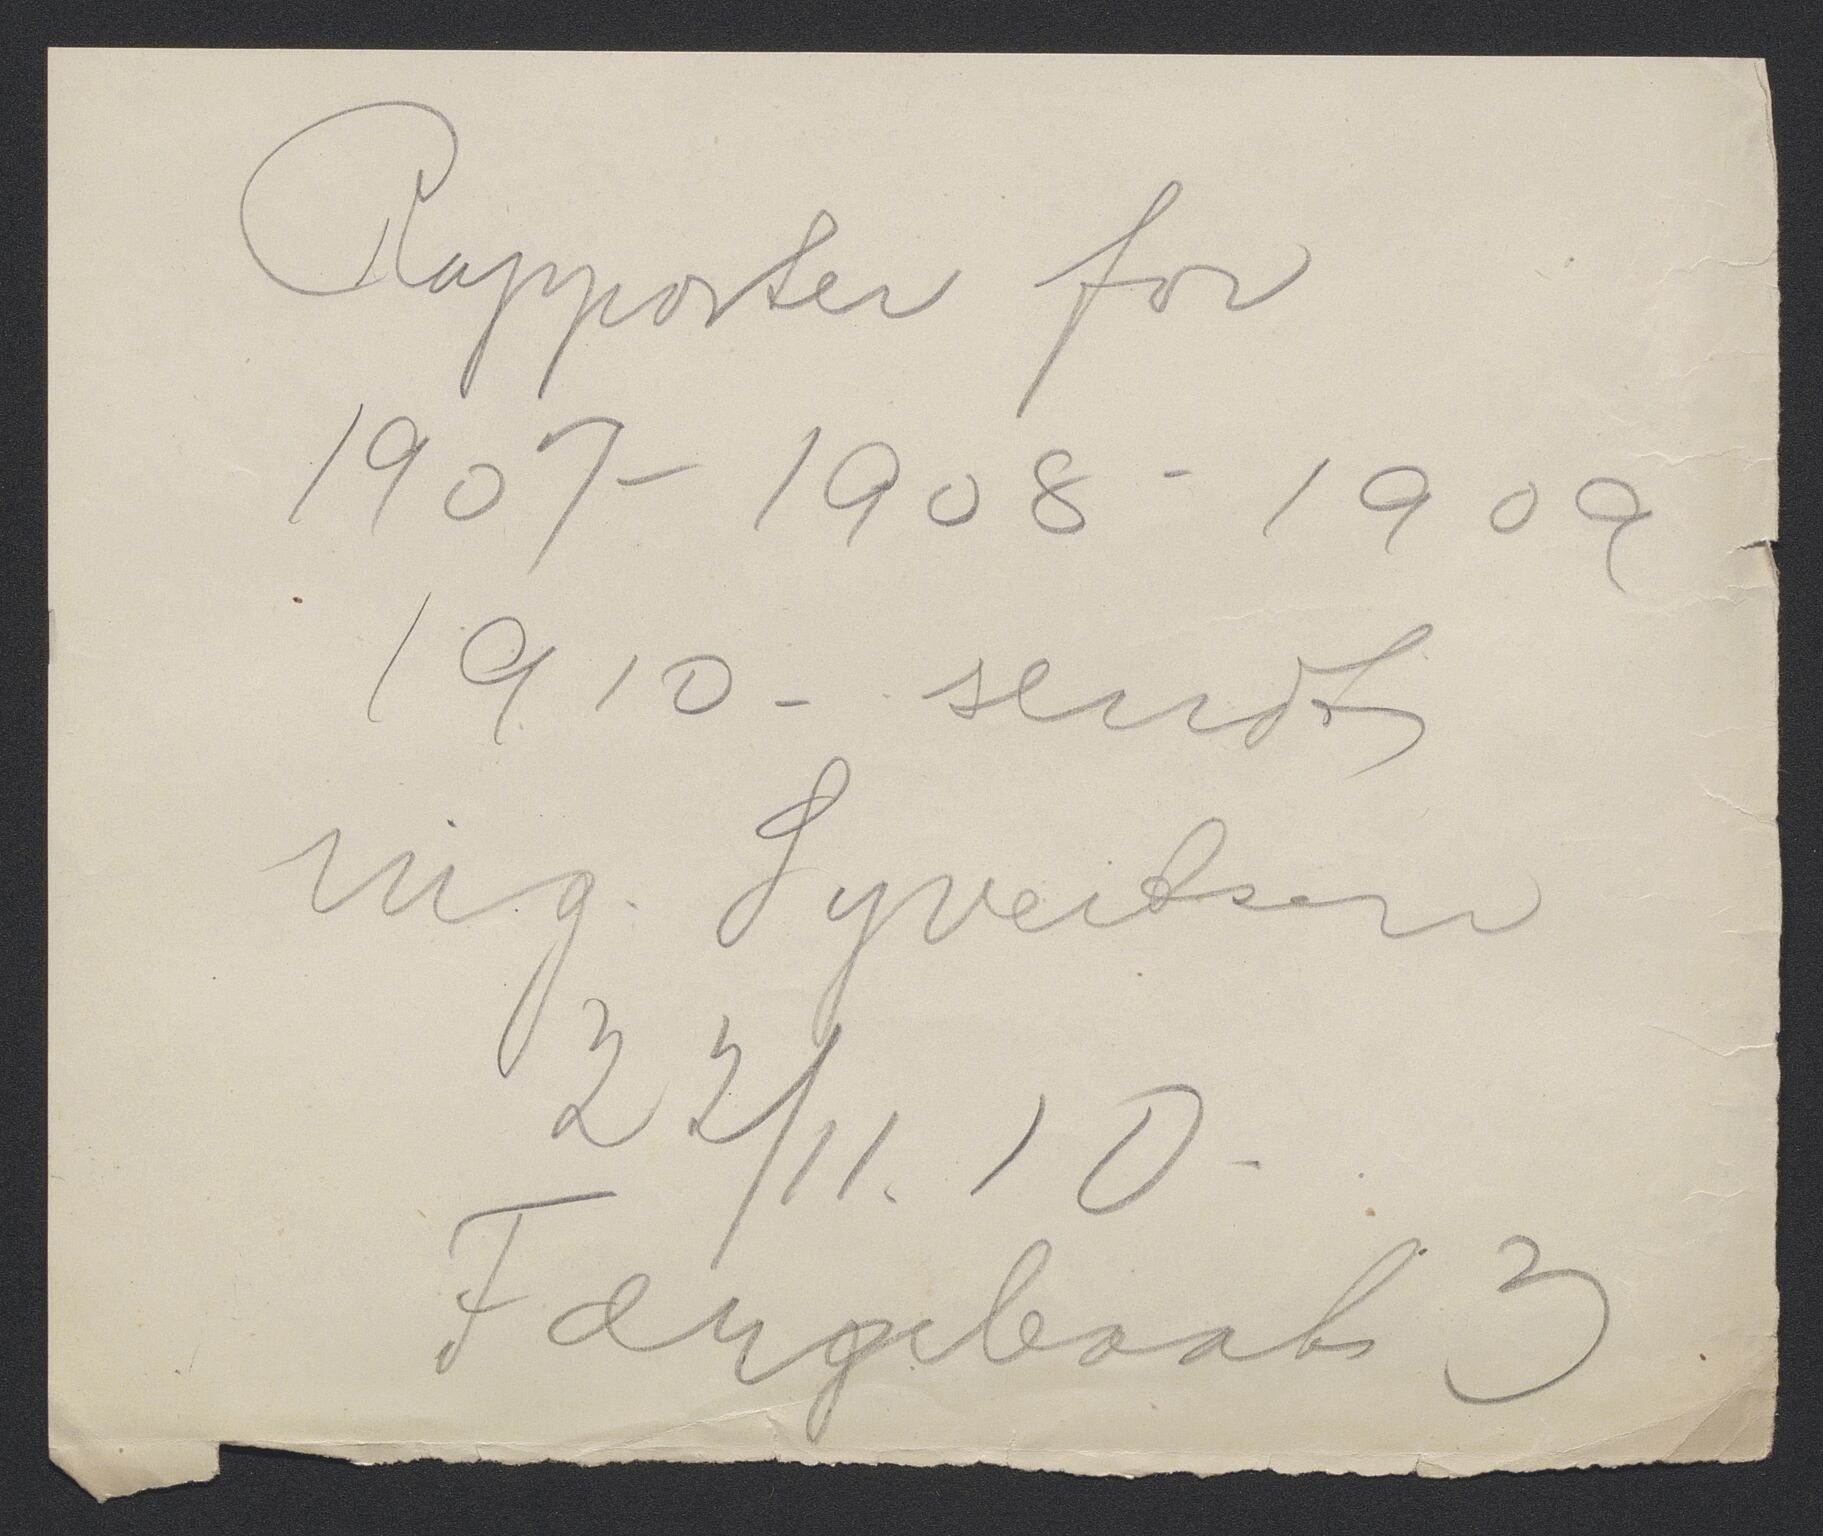 Rapporter for
1907 - 1908 - 1909
1910 - sendt
ing. Syvertsen
22/11. 10 -
Færgebaat 3